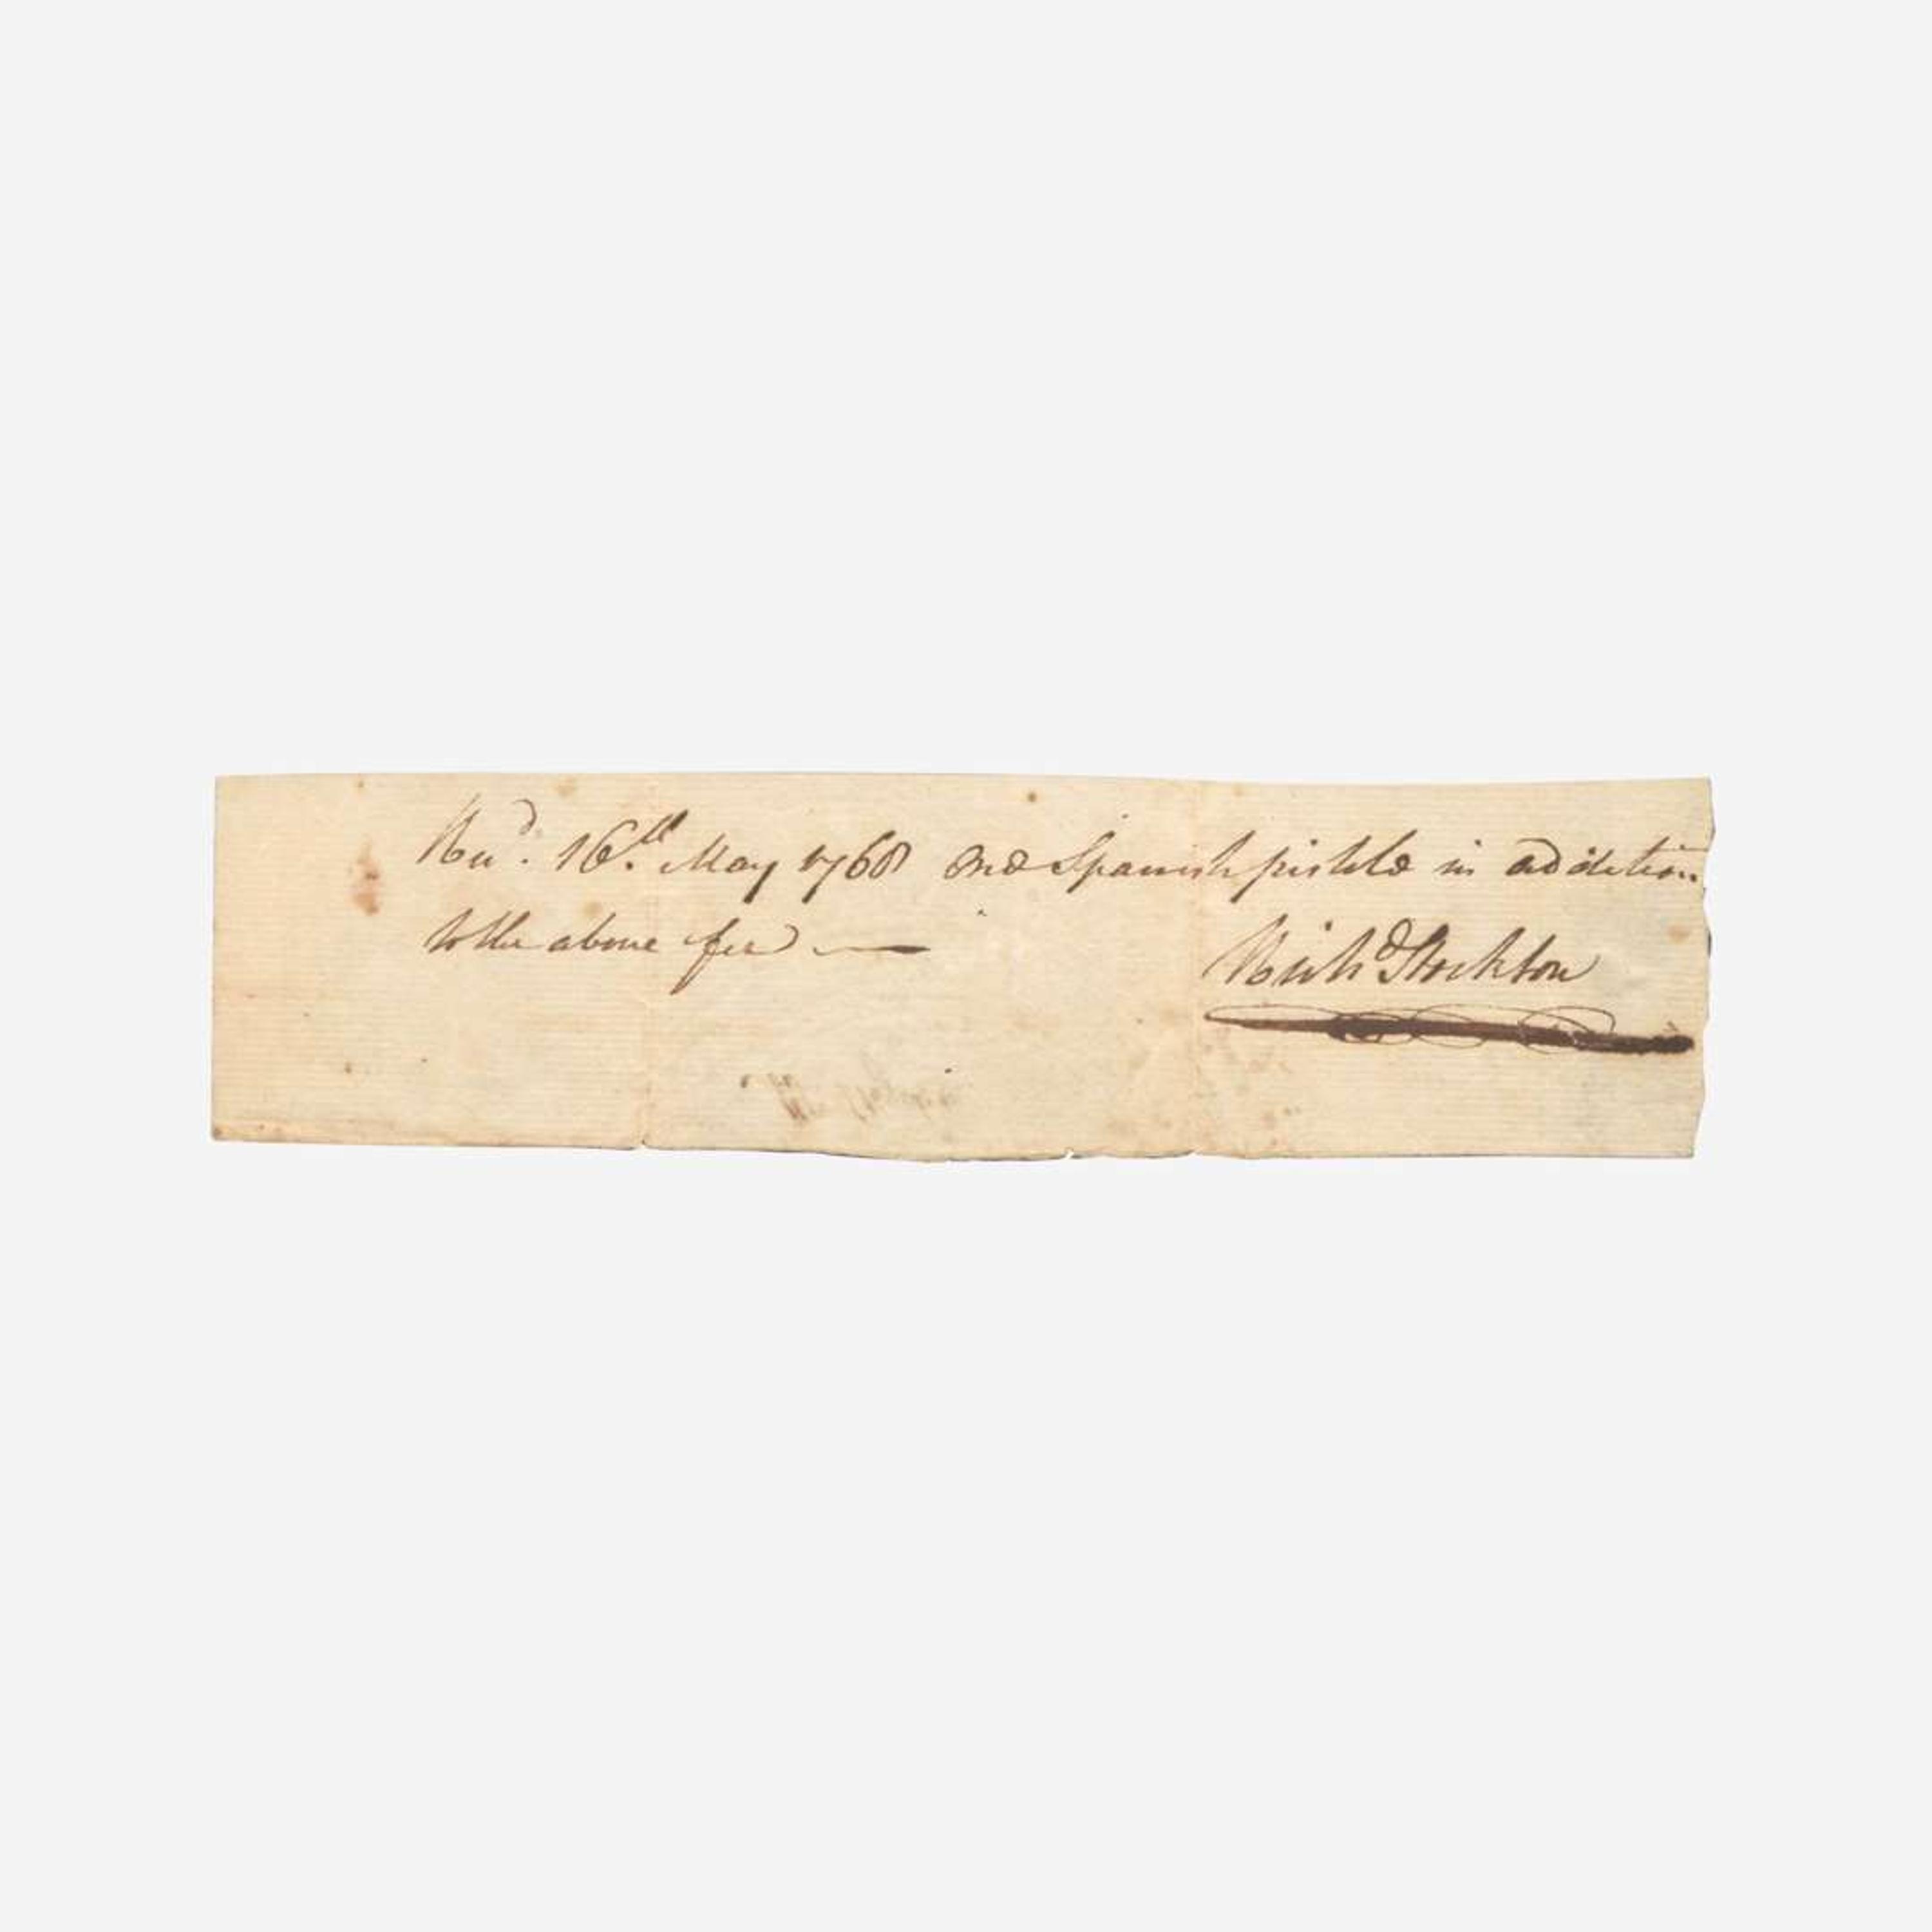 Recd. 16th. May 1768 one Spanish pistole in addition
to the above fee —
Richd Stockton